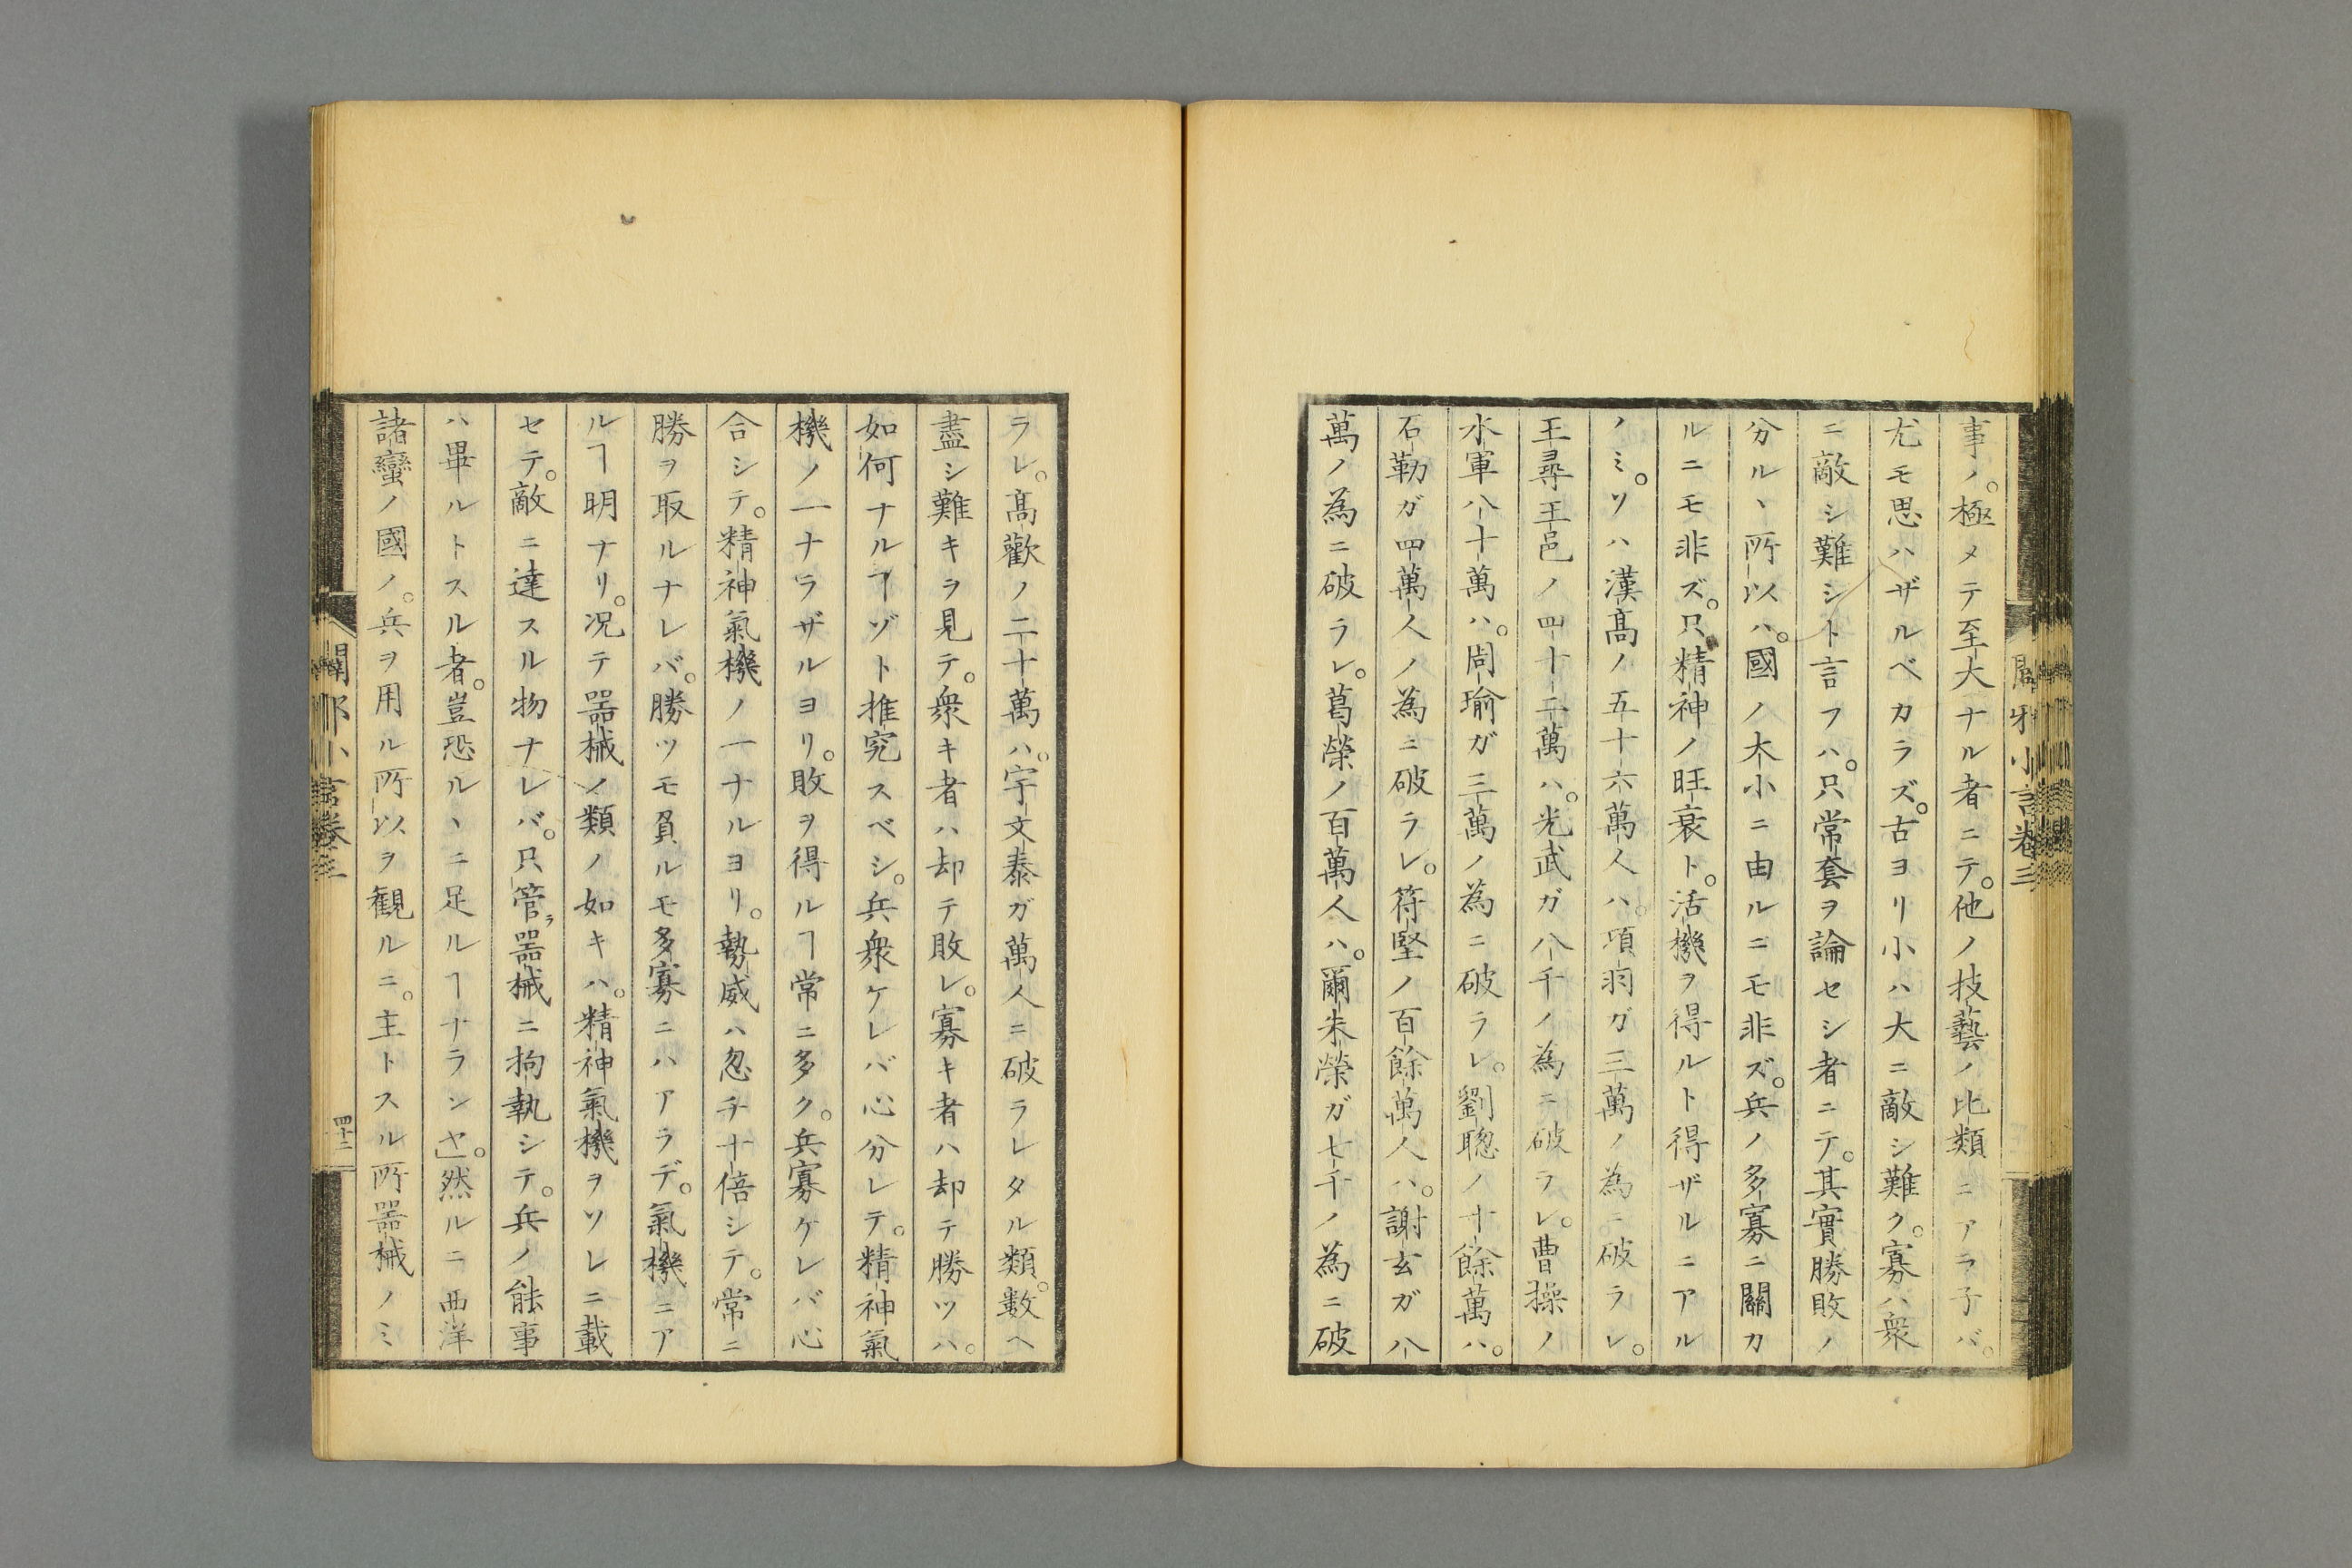 事ノ。極メテ至大ナル者ニテ。他ノ技藝ノ比類ニアラ子バ。
尤モ思ハザルベカラズ。古ヨリ小ハ大ニ敵シ難ク。寡ハ衆
ニ敵シ難シト言フハ。只常套ヲ論セシ者ニテ。其實勝敗ノ
分ルヽ所以ハ。國ノ木小ニ由ルニモ非ズ。兵ノ多寡ニ關カ
ルニモ非ズ。只精神ノ旺衰ト。活機ヲ得ルト得ザルニアル
ノミ。ソハ漢髙ノ五十六萬人ハ。項羽ガ三萬ノ為ニ破ラレ。
王尋王邑ノ四十二萬ハ。光武ガ八千ノ為ニ破ラレ。曹操ノ
水軍八十萬ハ。周瑜ガ三萬ノ為ニ破ラレ。劉聰ノ十餘萬ハ。
石勒ガ四萬人ノ為ニ破ラレ。符堅ノ百餘萬人ハ。謝玄ガ八
萬ノ為ニ破ラレ。葛榮ノ百萬人ハ。爾朱榮ガ七千ノ為ニ破
ラレ。髙歡ノ二十萬ハ。宇文泰ガ萬人ニ破ラレタル類。数ヘ
盡シ難キヲ見テ。衆キ者ハ却テ敗レ。寡キ者ハ却テ勝ツハ。
如何ナルヿゾト推究スベシ。兵衆ケレバ心分レテ。精神氣
機ノ一ナラザルヨリ。敗ヲ得ルヿ常ニ多ク。兵寡ケレバ心
合シテ。精神氣機ノ一ナルヨリ。勢威ハ忽チ十倍シテ。常ニ
勝ヲ取ルナレバ。勝ツモ負ルモ多寡ニハアラデ。氣機ニア
ルヿ明ナリ。况テ噐械ノ類ノ如キハ。精神氣機ヲソレニ載
セテ。敵ニ達スル物ナレバ。只管ラ噐械ニ拘執シテ。兵ノ能事
ハ畢ルトスル者。豈恐ルヽニ足ルヿナランヤ」。然ルニ西洋
諸蠻ノ國ノ。兵ヲ用ル所以ヲ観ルニ。主トスル所噐械ノミ
小言卷三
四十二